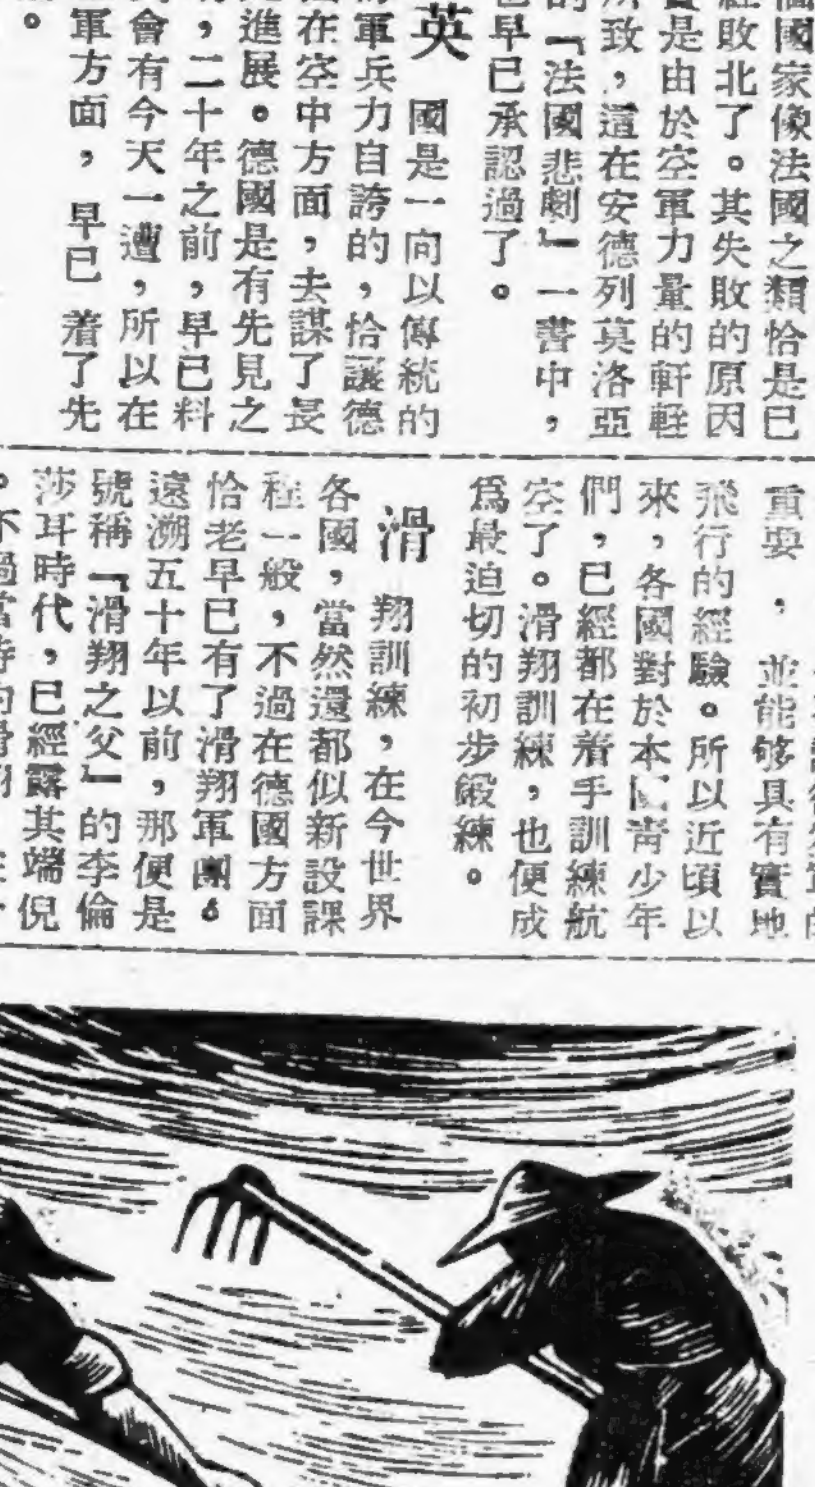 個國家像法國之類恰是已
經敗北了。其失敗的原因
實是由於空軍力量的軒輊
所致,這在安德列莫洛亞
的『法國悲劇』一書中,
也早已承認過了。
英國是一向以傳統的
海軍兵力自誇的,恰讓德
在空中方面,去謀了長
進展。德國是有先見之
,二十年之前,早已料
會有今天一遭,所以在
軍方面,早已着了先
。
重要,並能够具有實地
飛行的經驗。所以近頃以
來,各國對於本國靑少年
們,已經都在着手訓練航
空了。滑翔訓練,也便成
爲最迫切的初步鍛練。
滑翔訓練,在今世界
各國,當然還都似新設課
程一般,不過在德國方面
恰老早已有了滑翔軍團。
遠溯五十年以前,那便是
號稱『滑翔之父』的李倫
莎耳時代,已經露其端倪
。不過當時的滑翔